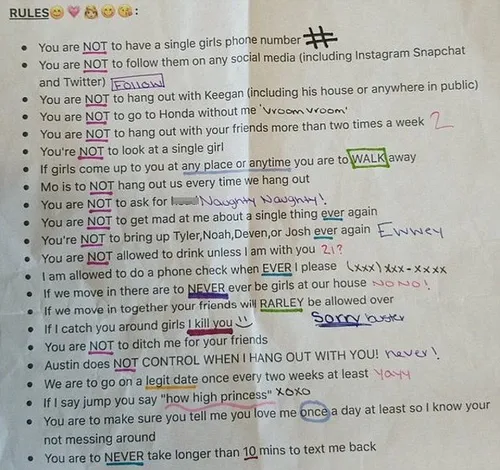 RULES😊💗👸😋😘:
• You are NOT to have a single girls phone number #
• You are NOT to follow them on any social media (including Instagram Snapchat
and Twitter) Follow
• You are NOT to hang out with Keegan (including his house or anywhere in public)
• You are NOT to go to Honda without me 'vroom vroom'
• You are NOT to hang out with your friends more than two times a week 2
• You're NOT to look at a single girl
• If girls come up to you at any place or anytime you are to WALK away
• Mo is to NOT hang out us every time we hang out
• You are NOT to ask for Naughty Naughty!
• You are NOT to get mad at me about a single thing ever again
• You're NOT to bring up Tyler,Noah,Deven,or Josh ever again Ewwey
• You are NOT allowed to drink unless I am with you 21?
• I am allowed to do a phone check when EVER I please (xxx) xxx-xxxx
• If we move in there are to NEVER ever be girls at our house NONO!
• If we move in together your friends will RARLEY be allowed over
• If I catch you around girls I kill you :) Sorry buster
• You are NOT to ditch me for your friends
• Austin does NOT CONTROL WHEN I HANG OUT WITH YOU! never!
• We are to go on a legit date once every two weeks at least Yayy
• If I say jump you say "how high princess" xoxo
• You are to make sure you tell me you love me once a day at least so I know your
not messing around
• You are to NEVER take longer than 10 mins to text me back